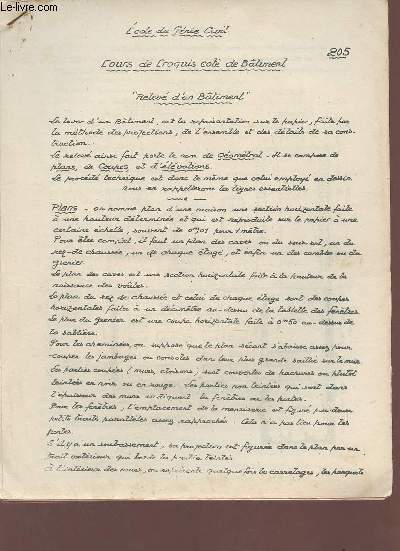 Le-livre.com
École du Génie Civil
205
Cours de Croquis coté de Bâtiment
"Relevé d'un Bâtiment"
Le lever d'un Bâtiment, est la représentation sur le papier, faite par
la méthode des projections, de l'ensemble et des détails de sa cons-
truction.
Le relevé ainsi fait porte le nom de Géométral. Il se compose de
plans, de Coupes et d'élévations.
Le procédé technique est donc le même que celui employé en dessin
nous en rappellerons les lignes essentielles.
PLANS - On nomme plan d'une maison une section horizontale faite
à une hauteur déterminée et qui est reproduite sur le papier à une
certaine échelle, souvent de 0m01 pour 1 mètre.
Pour être complet, il faut un plan des caves ou du sous-sol, un du
rez-de-chaussée, un de chaque étage, et enfin un des combles ou du
grenier
Le plan des caves est une section horizontale faite à la hauteur de la
naissance des voûtes.
Le plan du rez-de-chaussée et celui de chaque étage sont des coupes
horizontales faites à un décimètre au-dessus de la tablette des fenêtres.
Le plan du grenier est une coupe horizontale faite à 0m50 au-dessus de
la sablière.
Pour les cheminées, on suppose que le plan sécant s'abaisse assez pour
couper les jambages ou consoles dans leur plus grande saillie sur le mur.
Les parties coupées (murs, cloisons) sont couvertes de hachures ou plutôt
teintées en noir ou en rouge. Les parties non teintées qui sont dans
l'épaisseur des murs indiquent les fenêtres ou les portes.
Pour les fenêtres, l'emplacement de la menuiserie est figuré par deux
petits traits parallèles assez rapprochés. Cela n'a pas lieu pour les
portes.
S'il y a un soubassement, sa projection est figurée dans le plan par un
trait extérieur qui borde la partie teintée.
à l'intérieur des murs, on représente quelquefois les carrelages, les parquets